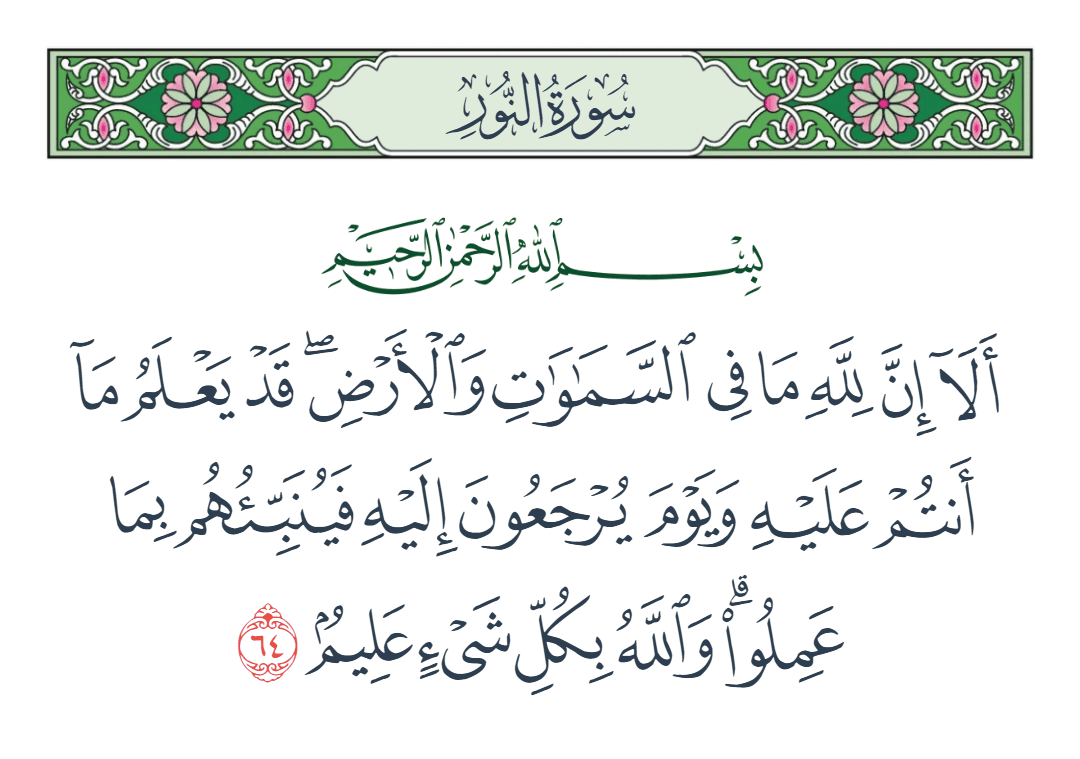 سُورَةُ النُّورِ
بِسْمِ ٱللَّهِ ٱلرَّحْمَٰنِ ٱلرَّحِيمِ
أَلَآ إِنَّ لِلَّهِ مَا فِى ٱلسَّمَـٰوَٰتِ وَٱلْأَرْضِ ۖ قَدْ يَعْلَمُ مَآ
أَنتُمْ عَلَيْهِ وَيَوْمَ يُرْجَعُونَ إِلَيْهِ فَيُنَبِّئُهُم بِمَا
عَمِلُوا۟ ۗ وَٱللَّهُ بِكُلِّ شَىْءٍ عَلِيمٌۢ ٦٤